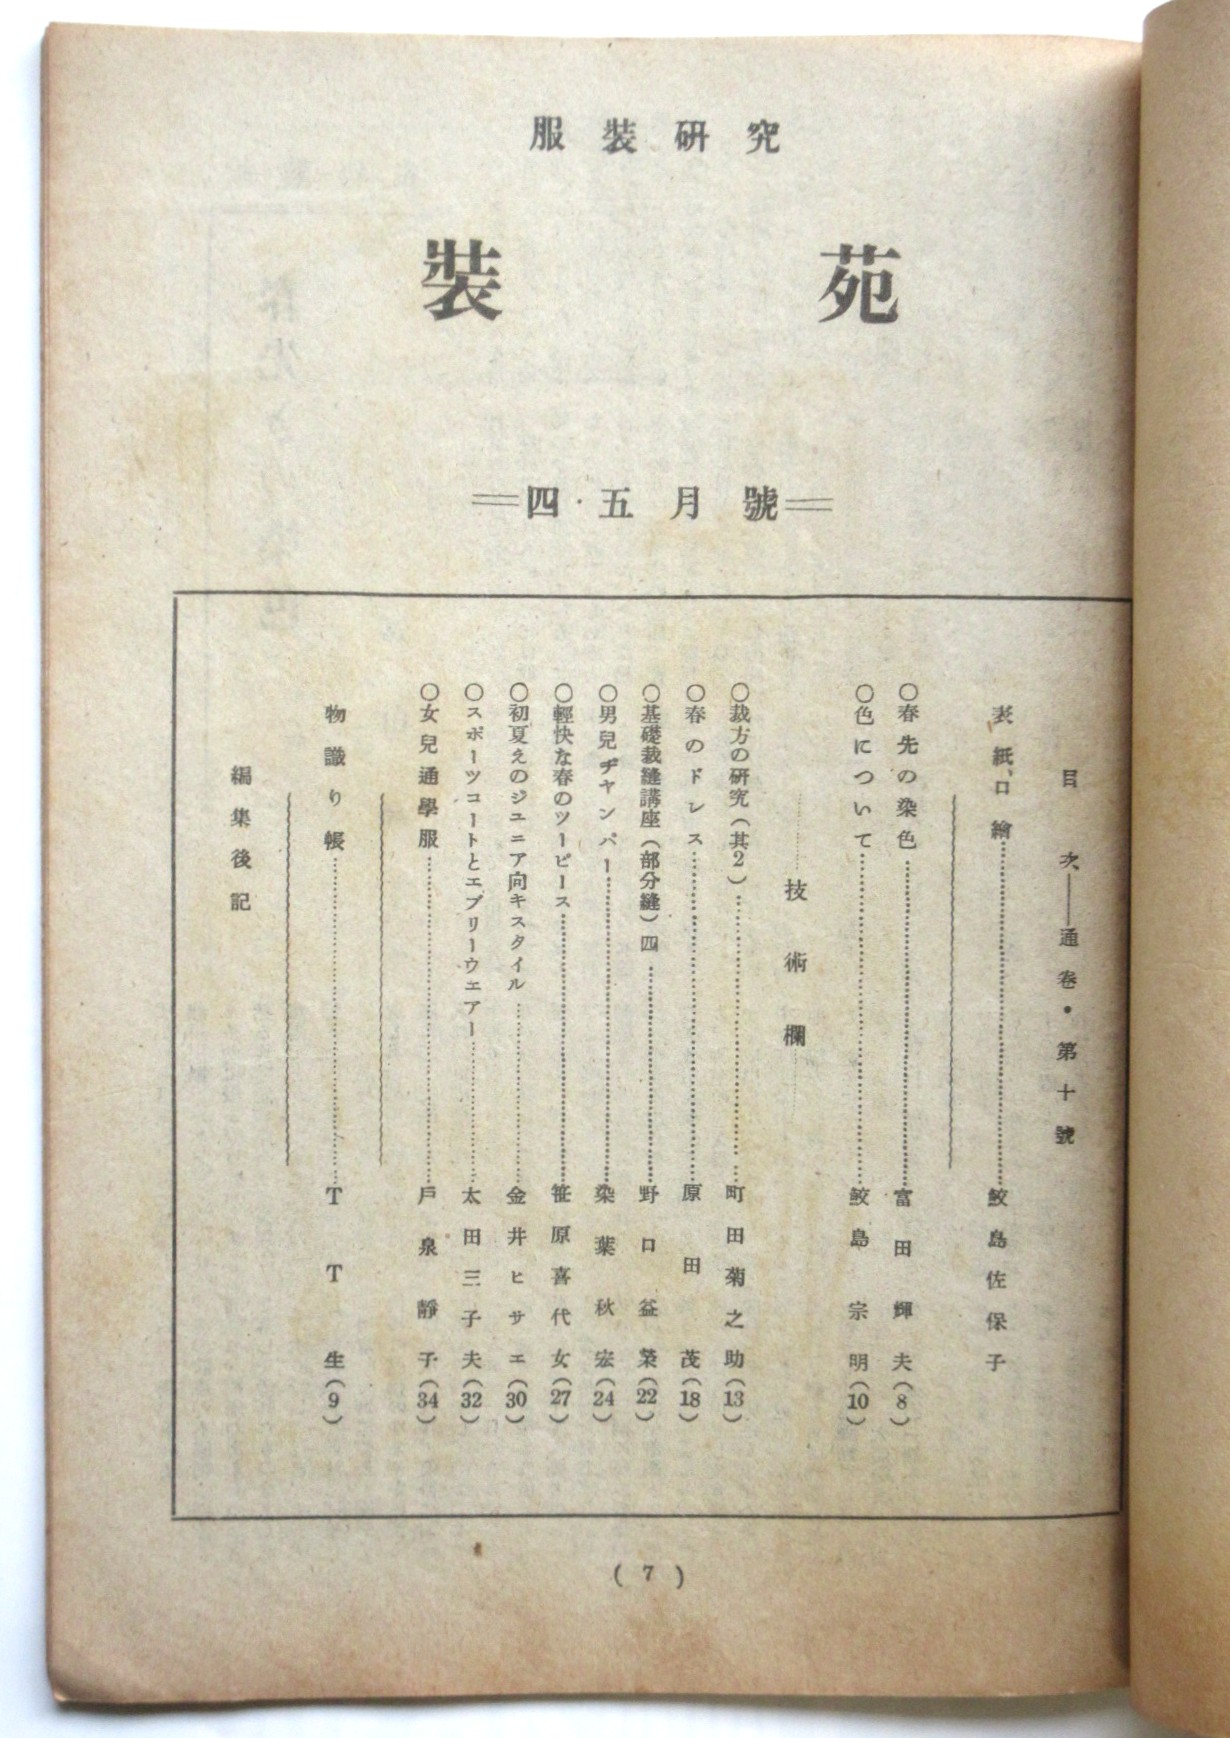 服裝研究
裝苑
四・五月號
目次――通卷・第十號
表紙、口繪………鮫島佐保子
○春先の染色………富田輝夫(8)
○色について………鮫島宗明(10)
技術欄
○裁方の研究(其2)………町田菊之助(13)
○春のドレス………原田茂(18)
○基礎裁縫講座(部分縫)四………野口益榮(22)
○男兒ヂャンパー………染葉秋宏(24)
○輕快な春のツーピース………笹原喜代女(27)
○初夏えのジュニア向キスタイル………金井ヒサエ(30)
○スポーツコートとエブリーウエアー………太田三子夫(32)
○女兒通學服………戸泉靜子(34)
物識り帳………TT生(9)
編集後記
(7)